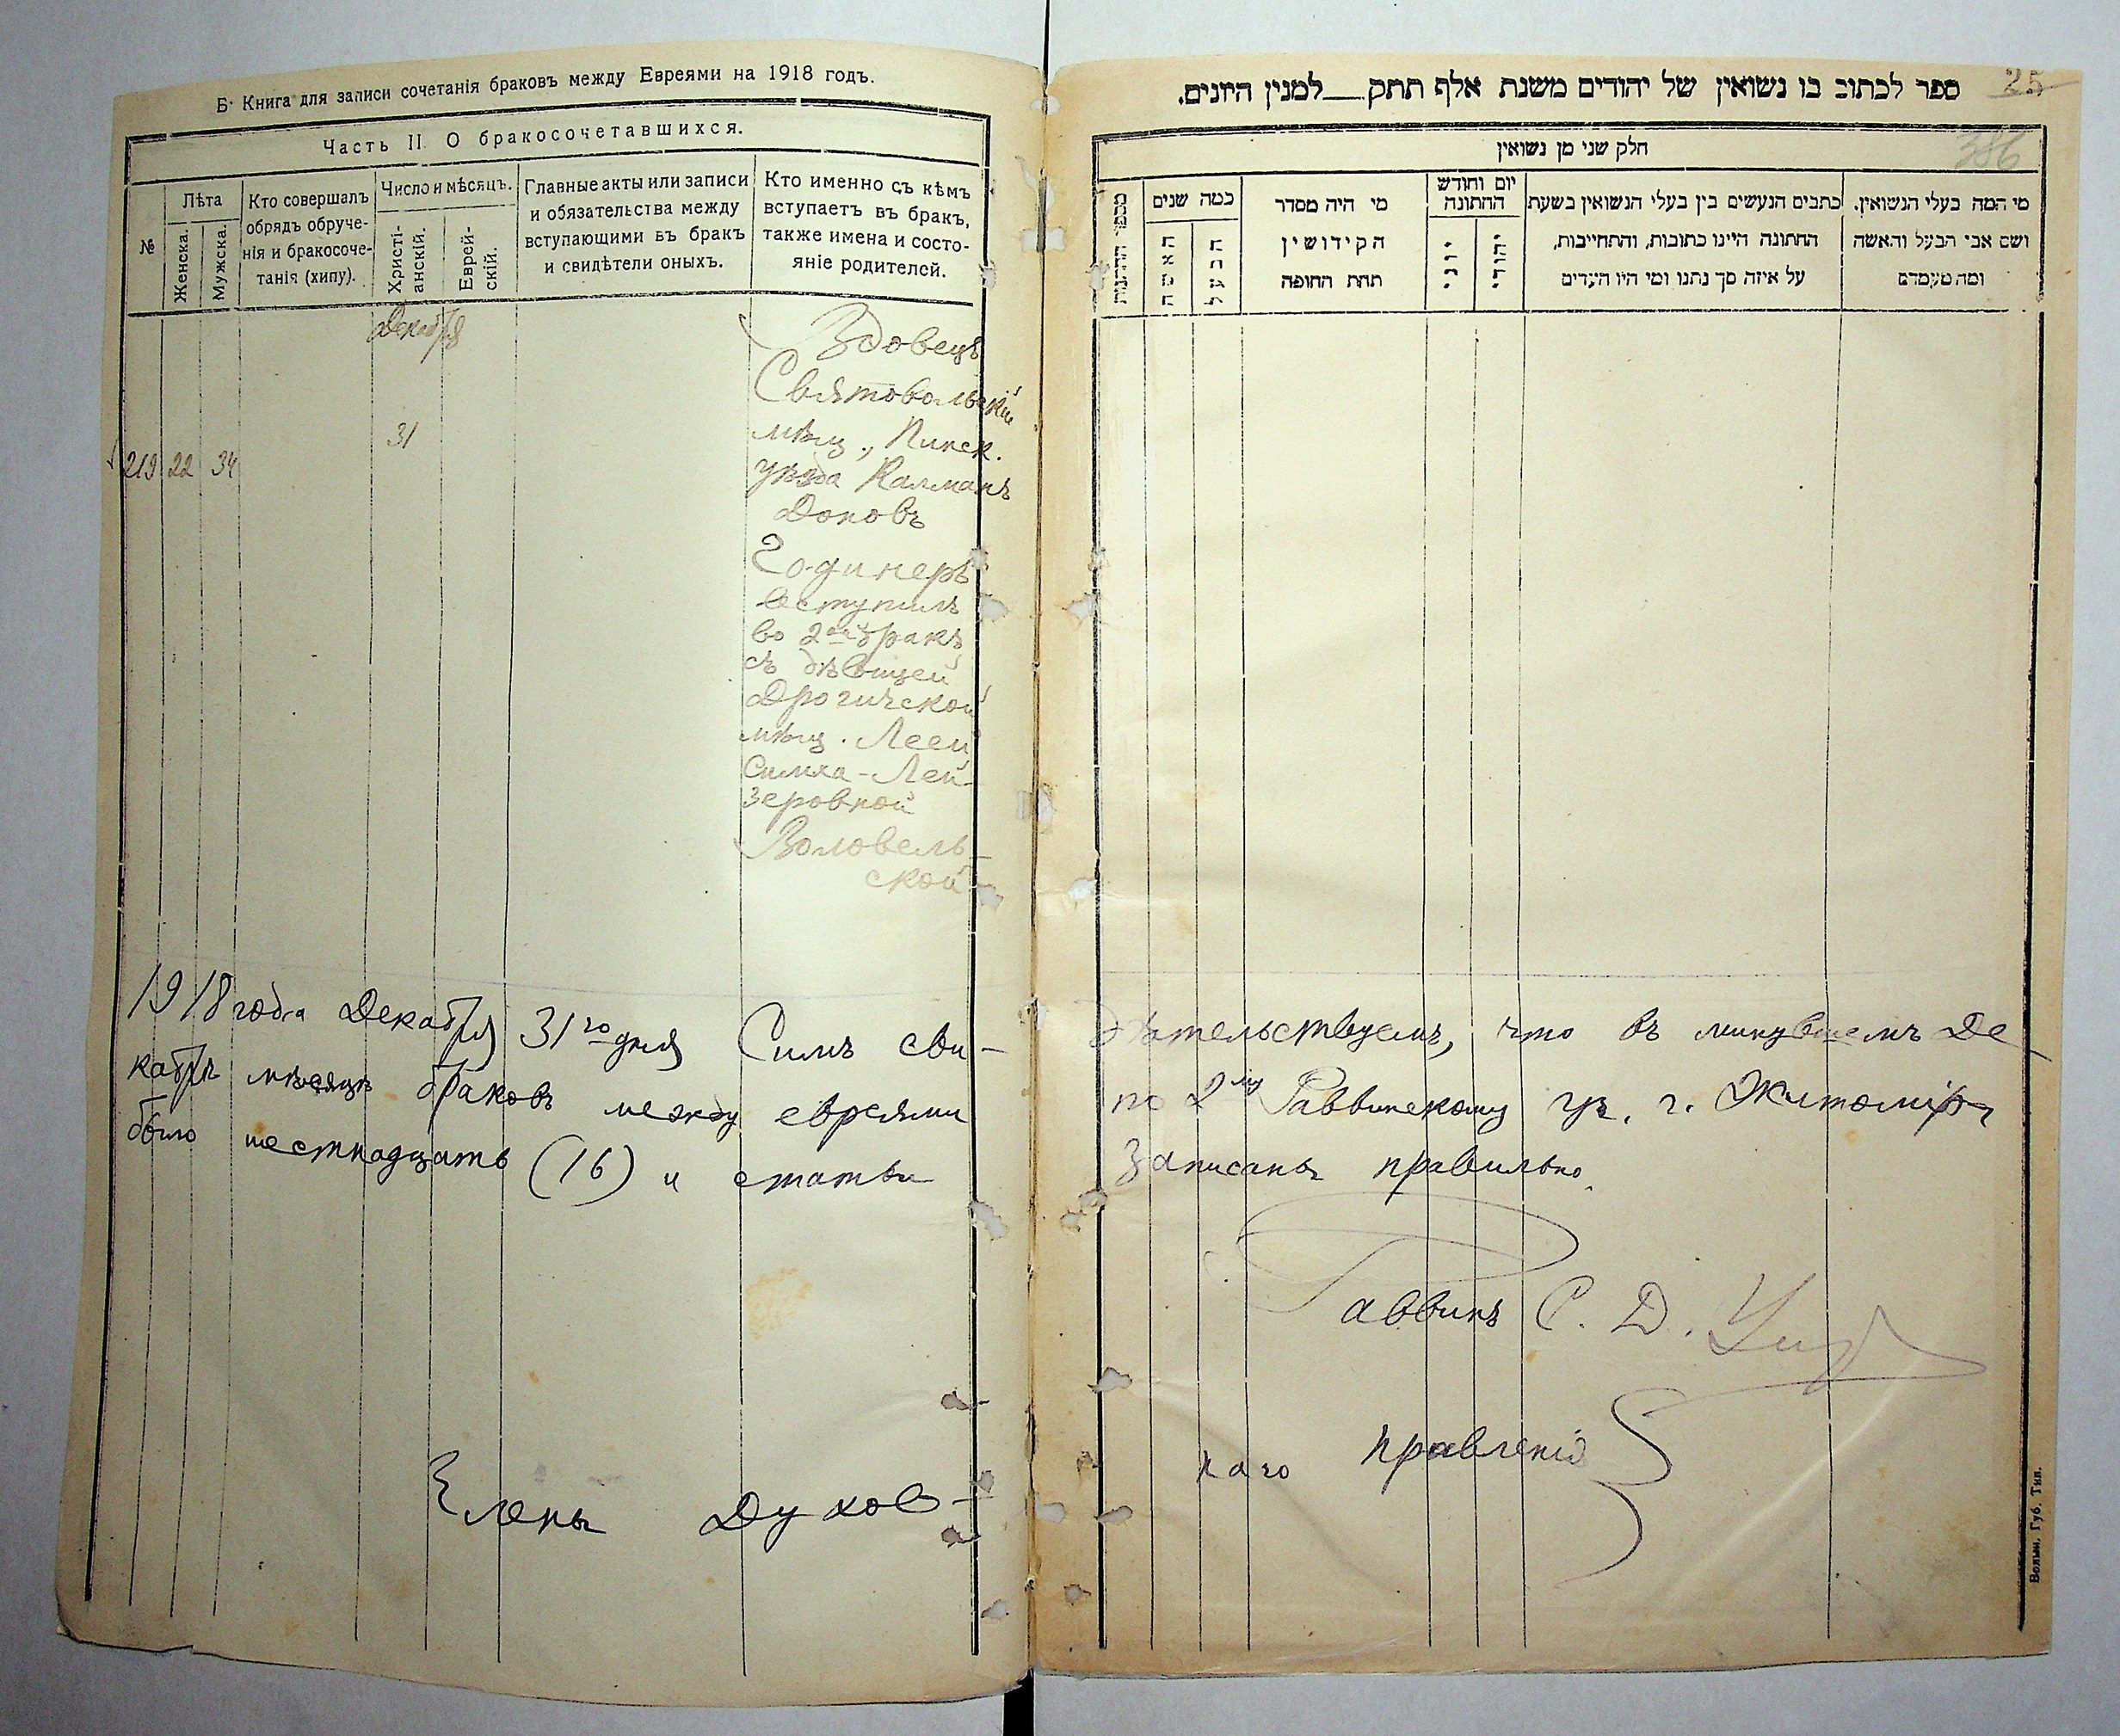 Б. Книга для записи сочетанія браковъ между Евреями на 1918 годъ.
Часть II О бракосочетавшихся.
№
Лѣта
Женска.
Мужска.
Кто совершалъ
обрядъ обруче-
нія и бракосоче-
танія (хипу).
Число и мѣсяцъ.
Христі-
анскій.
Еврей-
скій.
Главные акты или записи
и обязательства между
вступающими въ бракъ
и свидѣтели оныхъ.
Кто именно съ кѣмъ
вступаетъ въ бракъ,
также имена и состо-
яніе родителей.
Декабря
219 22 34
31
Вдовецъ
Святовольскій
мѣщ., Пинск.
уѣзда Калманъ
Доновъ
Годинеръ
вступилъ
во 2ой бракъ
съ дѣвицей
Дрогичской
мѣщ. Леей
Симха-Лей-
зеровной
Воловель-
ской
1918 года Декабря 31го дня Симъ сви-
кабрѣ мѣсяцѣ браковъ между евреями
было шестнадцать (16) и статьи
Члены Духов-
ספר לכתוב בו נשואין של יהודים משנת אלף תתק__למנין היונים.
25
386
חלק שני מן נשואין
מספר החתונות
כמה שנים
האשה
הבעל
מי היה מסדר
הקידושין
תחת החופה
יום וחודש
החתונה
יוני
יהודי
כתבים הנעשים בין בעלי הנשואין בשעת
החתונה היינו כתובות, והתחייבות,
על איזה סך נתנו ומי היו העדים
מי המה בעלי הנשואין.
ושם אבי הבעל והאשה
ומה מעמדם
дѣтельствуемъ, что въ минувшемъ Де-
по 2му Раввинскому уч. г. Житомира
записаны правильно.
Раввинъ С. Д.
наго правленія
Волын. Губ. Тип.